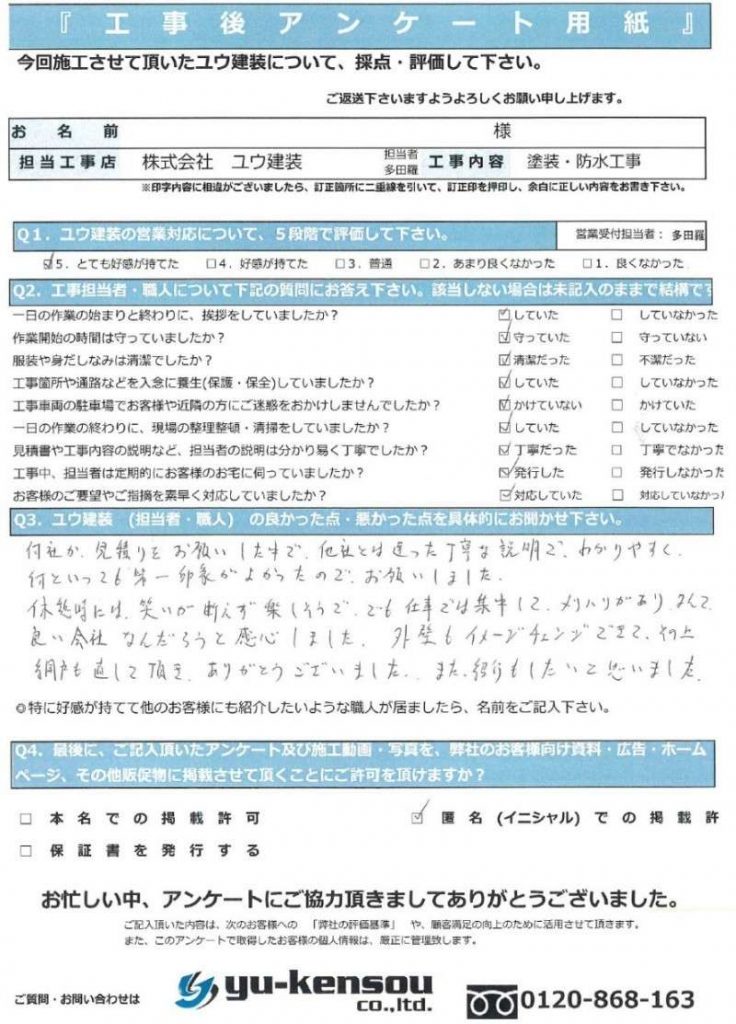 『工事後アンケート用紙』
今回施工させて頂いたユウ建装について、採点・評価して下さい。
ご返送下さいますようよろしくお願い申し上げます。
お名前 様
担当工事店 株式会社 ユウ建装 担当者 多田羅 工事内容 塗装・防水工事
※印字内容に相違がございましたら、訂正箇所に二重線を引いて、訂正印を押印し、余白に正しい内容をお書き下さい。
Q1．ユウ建装の営業対応について、５段階で評価して下さい。 営業受付担当者：多田羅
☑5．とても好感が持てた □4．好感が持てた □3．普通 □2．あまり良くなかった □1．良くなかった
Q2．工事担当者・職人について下記の質問にお答え下さい。該当しない場合は未記入のままで結構です
一日の作業の始まりと終わりに、挨拶をしていましたか？ ☑していた □していなかった
作業開始の時間は守っていましたか？ ☑守っていた □守っていない
服装や身だしなみは清潔でしたか？ ☑清潔だった □不潔だった
工事箇所や通路などを入念に養生(保護・保全)していましたか？ ☑していた □していなかった
工事車両の駐車場でお客様や近隣の方にご迷惑をおかけしませんでしたか？ ☑かけていない □かけていた
一日の作業の終わりに、現場の整理整頓・清掃をしていましたか？ ☑していた □していなかった
見積書や工事内容の説明など、担当者の説明は分かり易く丁寧でしたか？ ☑丁寧だった □丁寧でなかった
工事中、担当者は定期的にお客様のお宅に伺っていましたか？ ☑発行した □発行しなかった
お客様のご要望やご指摘を素早く対応していましたか？ ☑対応していた □対応していなかっ
Q3．ユウ建装 (担当者・職人) の良かった点・悪かった点を具体的にお聞かせ下さい。
何社か、見積りをお願いした中で、他社とは違った丁寧な説明で、わかりやすく、
何といっても第一印象がよかったので、お願いしました。
休憩時には、笑いが断えず楽しそうで、でも仕事では集中して、メリハリがあり、なんて
良い会社なんだろうと感心しました。外壁もイメージチェンジできて、その上
網戸も直して頂き、ありがとうございました。また、紹介もしたいと思いました。
◎特に好感が持てて他のお客様にも紹介したいような職人が居ましたら、名前をご記入下さい。
Q4．最後に、ご記入頂いたアンケート及び施工動画・写真を、弊社のお客様向け資料・広告・ホーム
ページ、その他販促物に掲載させて頂くことにご許可を頂けますか？
□ 本名での掲載許可 ☑ 匿名(イニシャル)での掲載許
□ 保証書を発行する
お忙しい中、アンケートにご協力頂きましてありがとうございました。
ご記入頂いた内容は、次のお客様への 「弊社の評価基準」 や、顧客満足の向上のために活用させて頂きます。
また、このアンケートで取得したお客様の個人情報は、厳正に管理致します。
ご質問・お問い合わせは yu-kensou co.,ltd. 0120-868-163